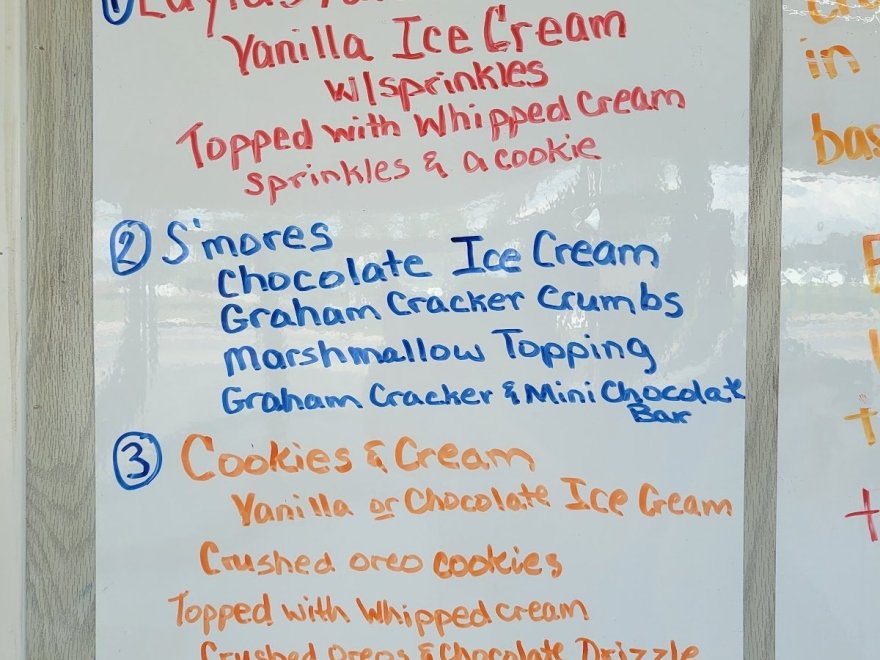 ①
Vanilla Ice Cream
w/sprinkles
Topped with Whipped Cream
sprinkles & a cookie
② S'mores
Chocolate Ice Cream
Graham Cracker Crumbs
Marshmallow Topping
Graham Cracker & Mini Chocolate
Bar
③ Cookies & Cream
Vanilla or Chocolate Ice Cream
Crushed oreo cookies
Topped with Whipped cream
Crushed Oreos & Chocolate Drizzle
in